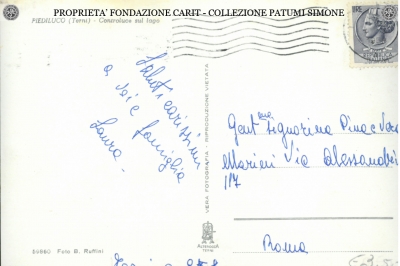 PROPRIETA' FONDAZIONE CARIT - COLLEZIONE PATUMI SIMONE
PIEDILUCO (Terni) - Cenarolace sul lago
Saluti carissimi
a Lei e famiglia
Laura
VERA FOTOGRAFIA - RIPRODUZIONE VIETATA
Gent.ma Signorina Pinac
Marini Via Alessandri
117
Roma
Foto B. Raffini